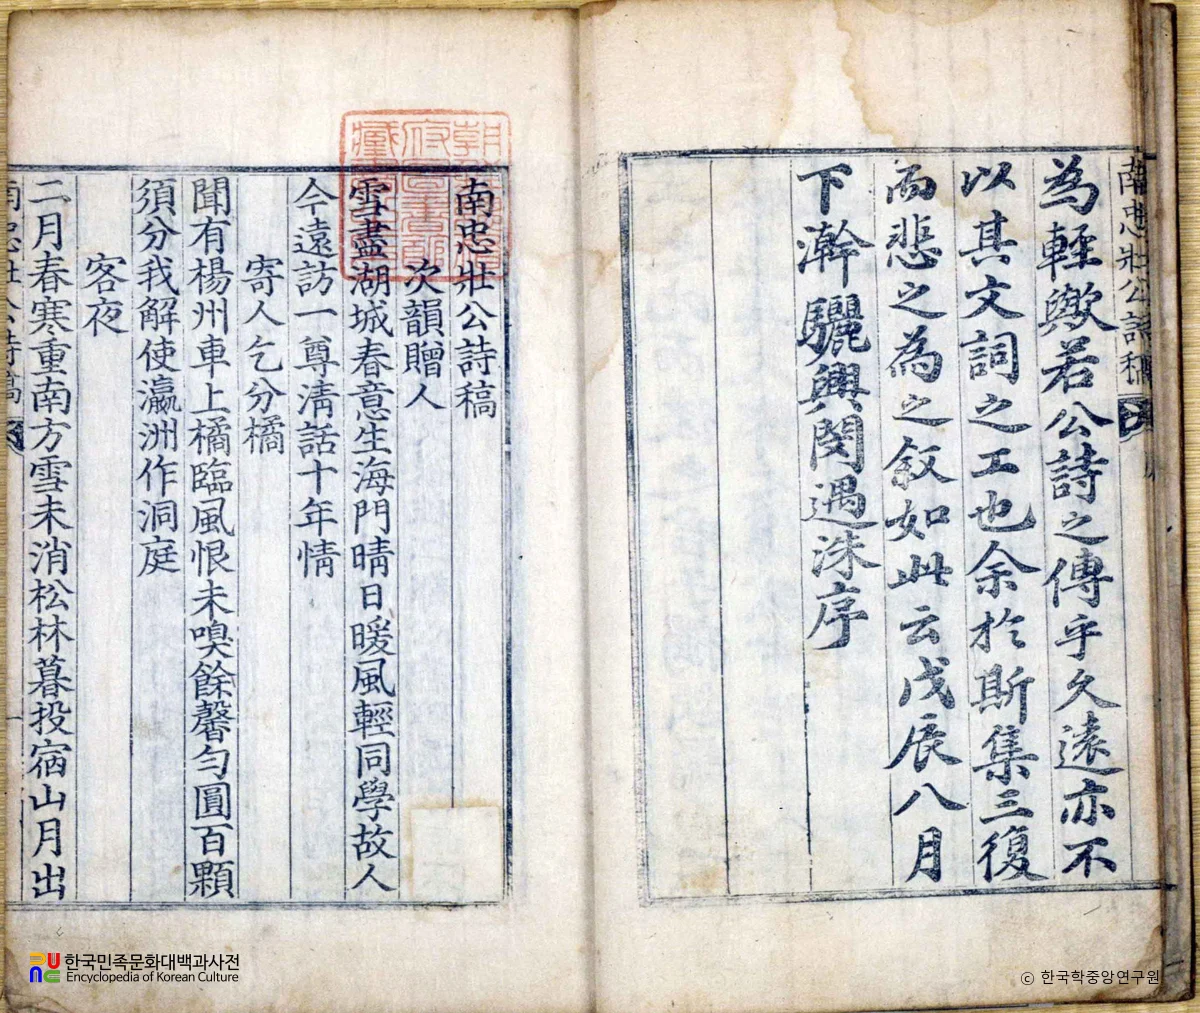 南忠壯公詩稿
為輕歟若公詩之傳乎久遠亦不
以其文詞之工也余於斯集三復
而悲之為之叙如此云戊辰八月
下澣驪興閔遇洙序
南忠壯公詩稿
次韻贈人
雪盡湖城春意生海門晴日暖風輕同學故人
今遠訪一尊淸話十年情
寄人乞分橘
聞有楊州車上橘臨風恨未嗅餘馨勻圓百顆
須分我解使瀛洲作洞庭
客夜
二月春寒重南方雪未消松林暮投宿山月出
南忠壯公詩稿
一
한국민족문화대백과사전
Encyclopedia of Korean Culture
ⓒ 한국학중앙연구원